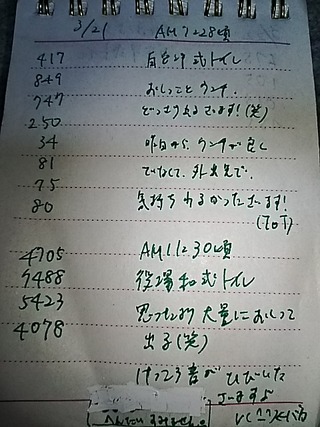 3/21 AM7:28頃
417 自宅洋式トイレ
849 おしっことウンチ.
747 どっさり出るざます!(笑)
250
34 昨日から ウンチが全く
81 でなくて、外出先で、
75 気持ちわるかったざます!
80 (ToT)
4705 AM11:30頃
9488 役場和式トイレ
5423 思った より 大量におしっこ
4078 出る(笑)
けっこう音が ひびいた
ざますよ
すみません。